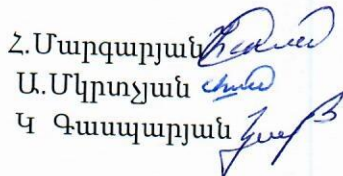 Զ.Մարգարյան
Ա.Մկրտչյան
Կ Գասպարյան